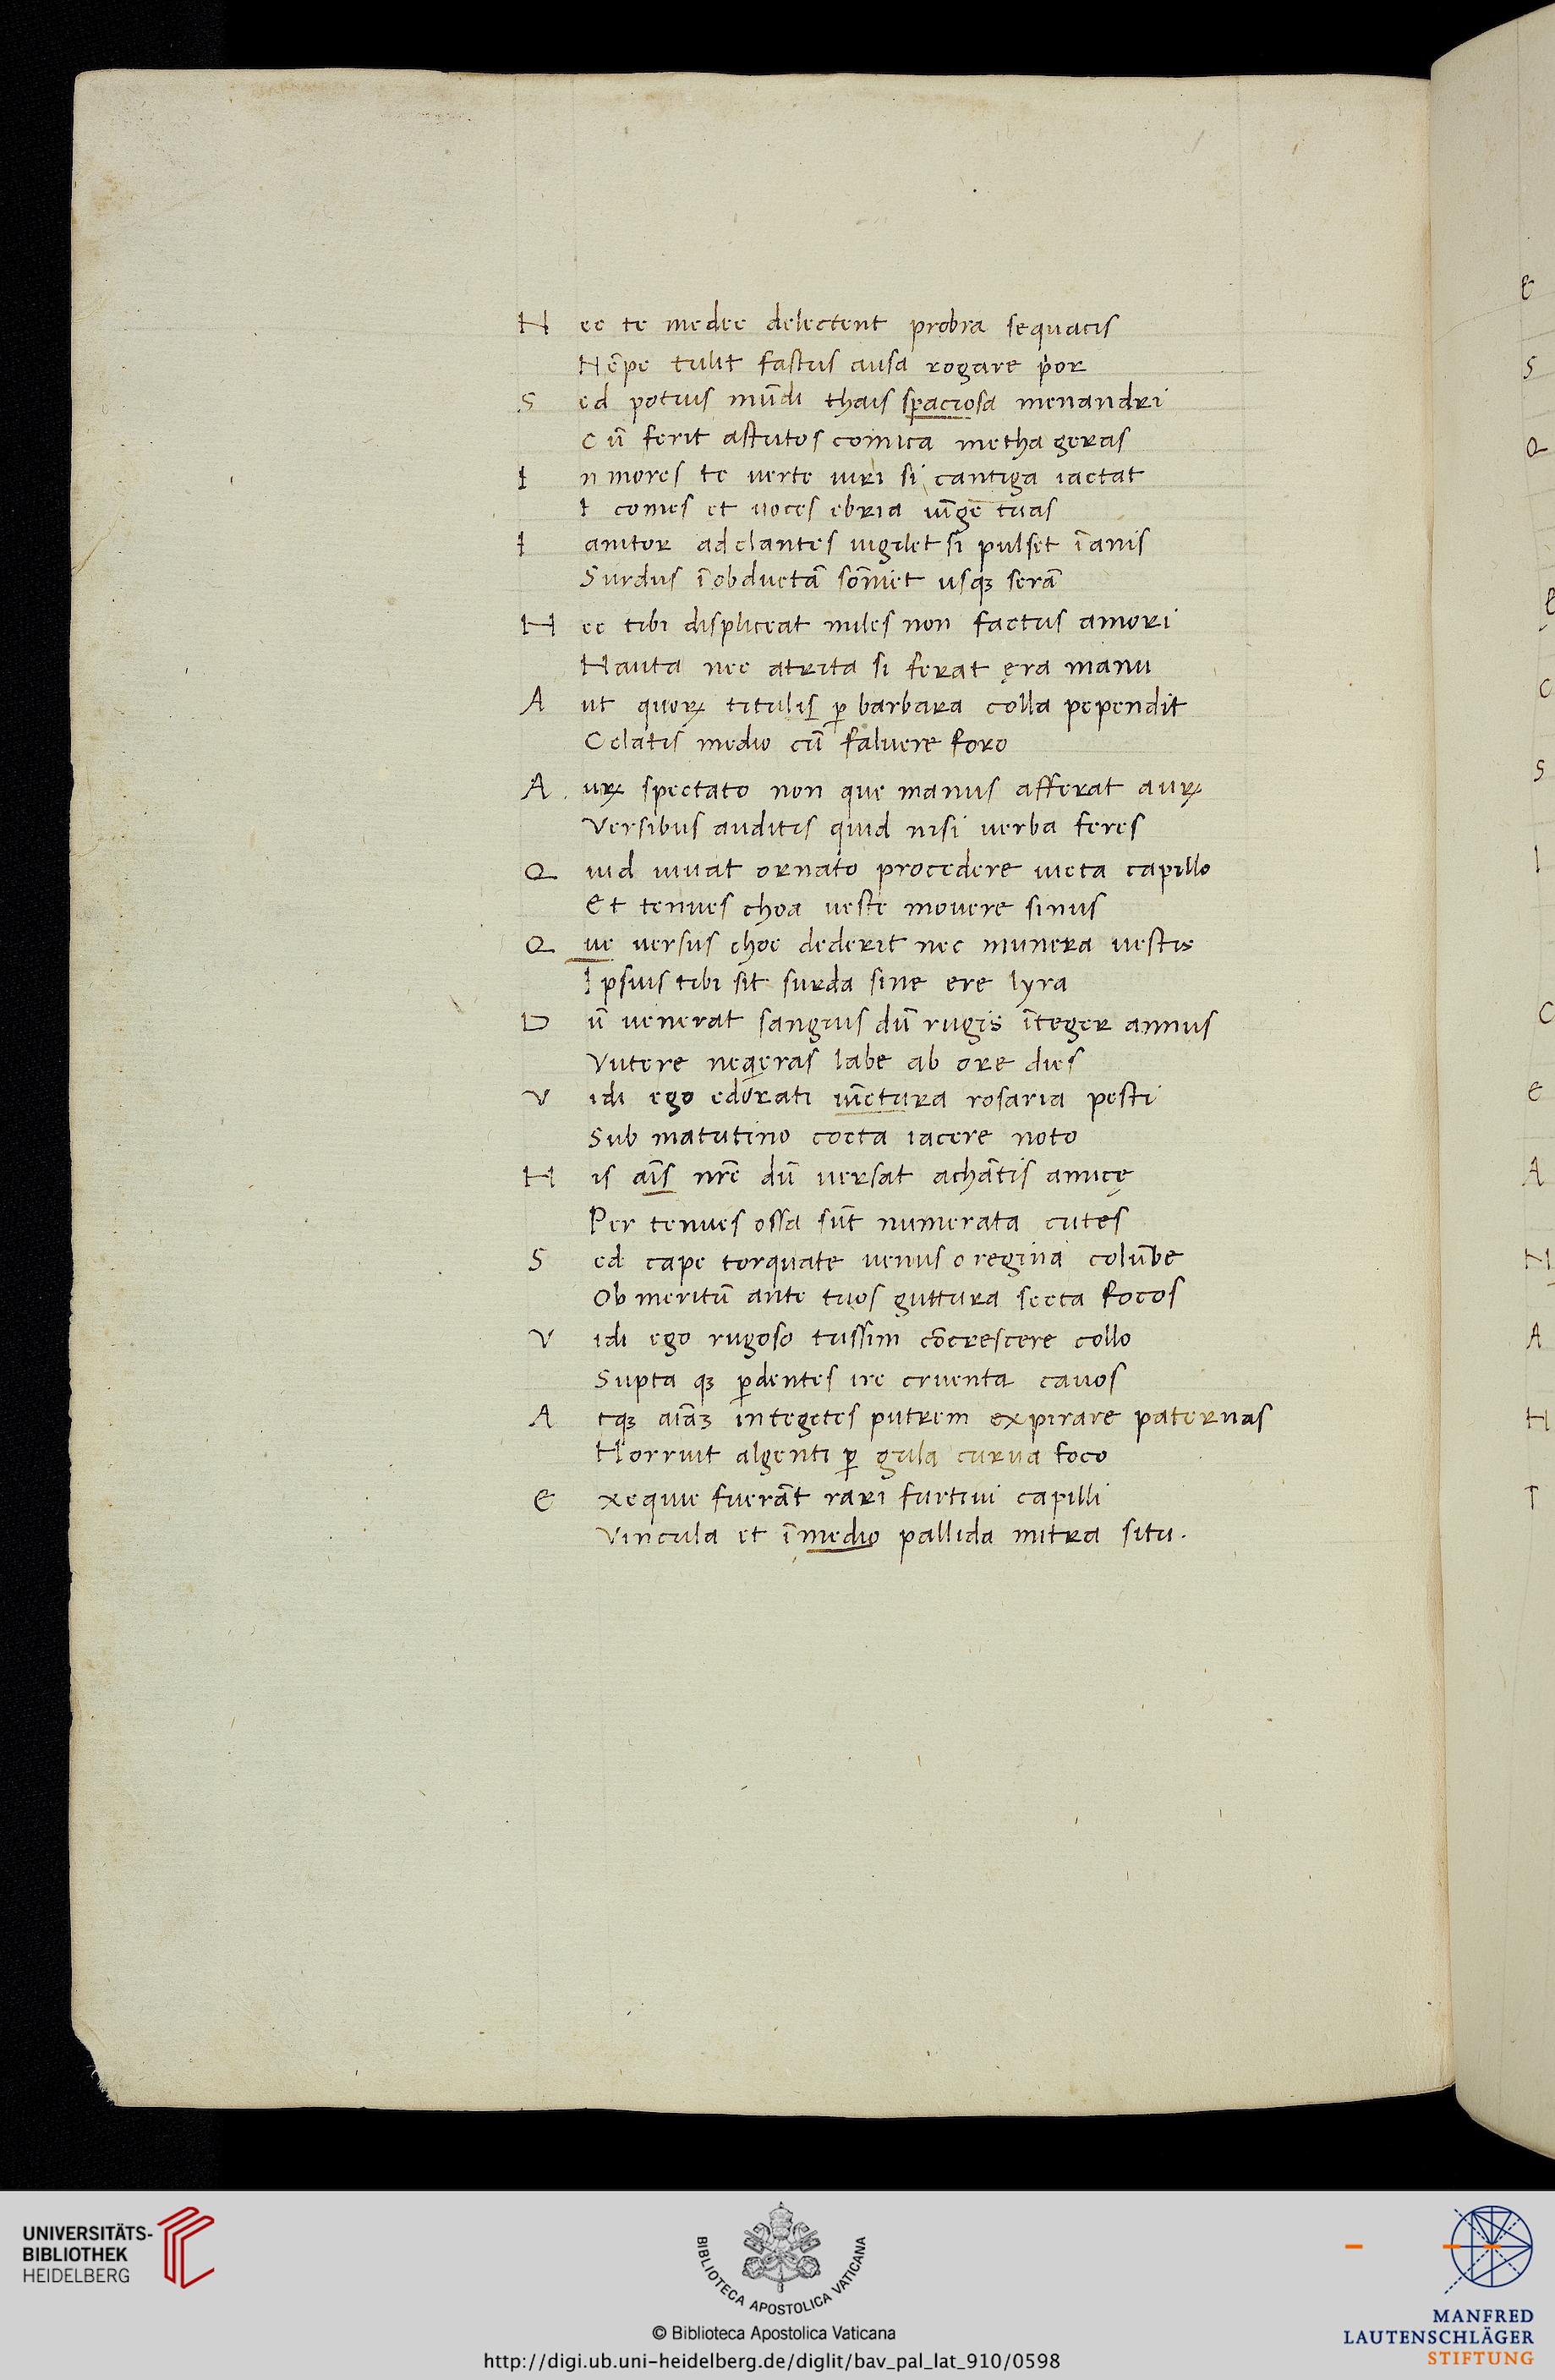 N ec te medee delectent probra sequacis
Nēpe tulit fastus ausa rogare por
S ed potius mūdi thais spaciosa menandri
Cū ferit astutos comica metha geras
I n mores te verte uiri si cantiga iactat
I comes et uoces ebria iūge tuas
I anitor ad dantes uigilet si pulset īanis
Surdus ī obductā somniet usqꝫ serā
N ec tibi displiceat miles non factus amori
Nauta nec atrita si ferat ęra manu
A ut quorꝝ titulis ꝑ barbara colla pependit
Celatis medio cū saluere foro
A urꝝ spectato non que manus afferat aurꝝ
Versibus auditis quid nisi uerba feres
Q uid iuuat ornato procedere uicta capillo
Et tenues choa ueste mouere sinus
Q ue uersus choe dederit nec munera uestis
Ipsius tibi sit surda sine ere lyra
D ū uenerat sangius dū rugis īteger annus
Vutere neqeras labe ab ore dies
V idi ego edorati uīctura rosaria pesti
Sub matutino cocta iacere noto
H is aīs nr̄e dū uersat achātis amicę
Per tenues ossa sūt numerata cutes
S ed cape torquate uenus o regina colūbe
Ob meritū ante tuos guttura secta focos
V idi ego rugoso tussim cōcrescere collo
Supta qꝫ ꝑdentes ire cruenta cauos
A tqꝫ aiāꝫ in tegetes putrem expirare paternas
Horruit algenti ꝑ gula curua foco
E xequie fuerāt rari furtiui capilli
Vincula et ī medio pallida mitra situ.
E
S
Q
C
S
I
C
E
A
N
A
H
T
UNIVERSITÄTS-
BIBLIOTHEK
HEIDELBERG
BIBLIOTECA APOSTOLICA VATICANA
© Biblioteca Apostolica Vaticana
http://digi.ub.uni-heidelberg.de/diglit/bav_pal_lat_910/0598
MANFRED
LAUTENSCHLÄGER
STIFTUNG